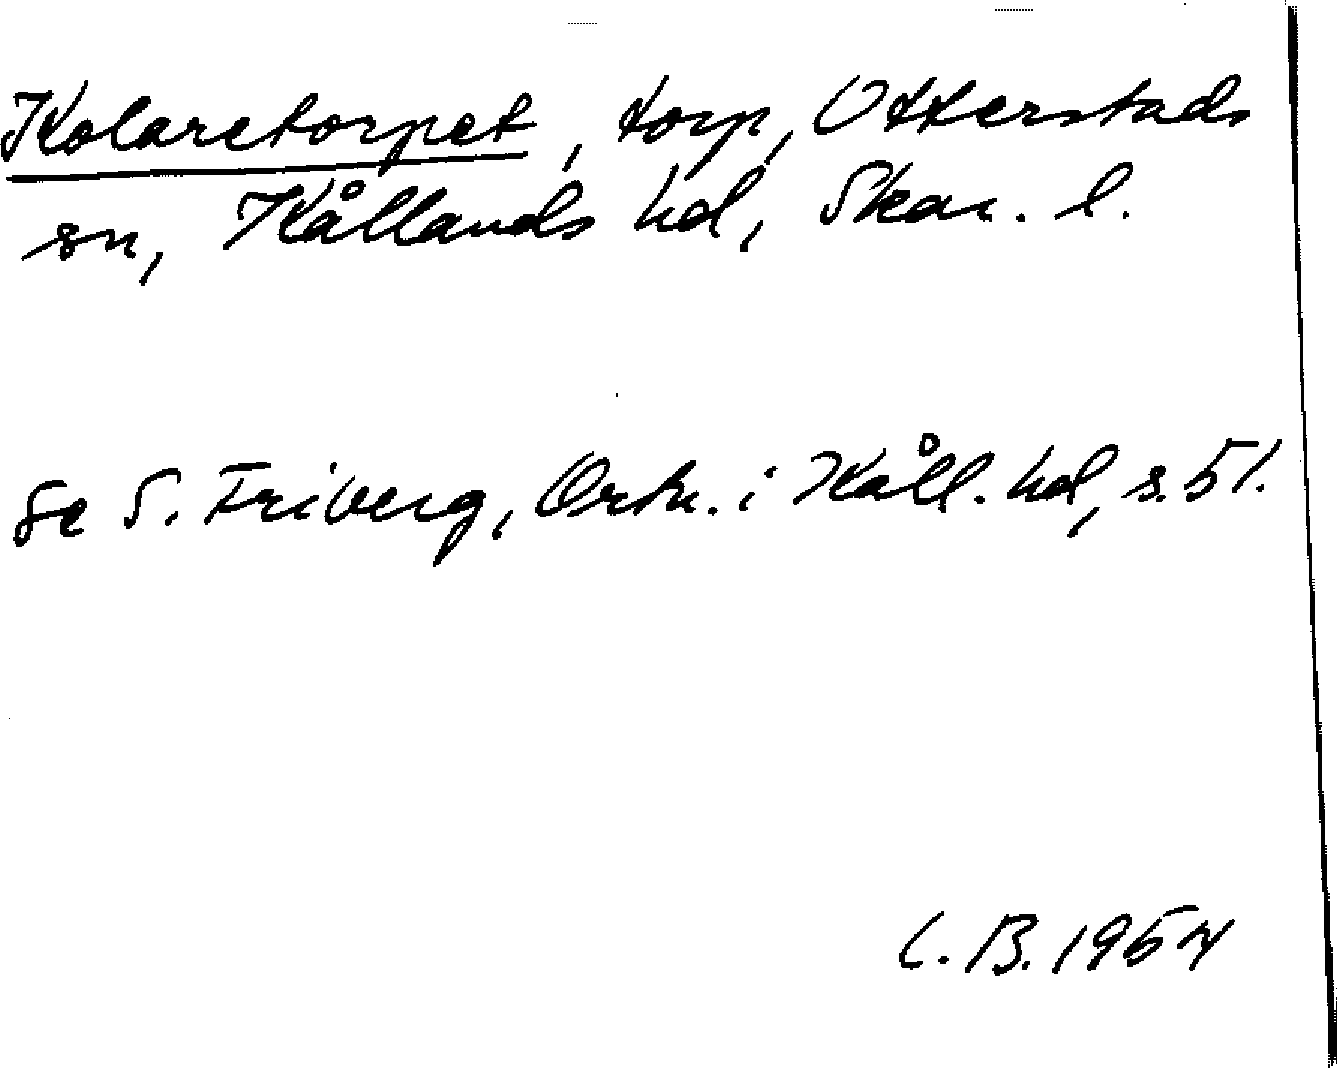 Kolaretorpet, torp, Otterstads
sn, Kållands hd, Skar. l.
Se S. Friberg, Ortn. i Kåll. hd, s. 51.
C. B. 1954